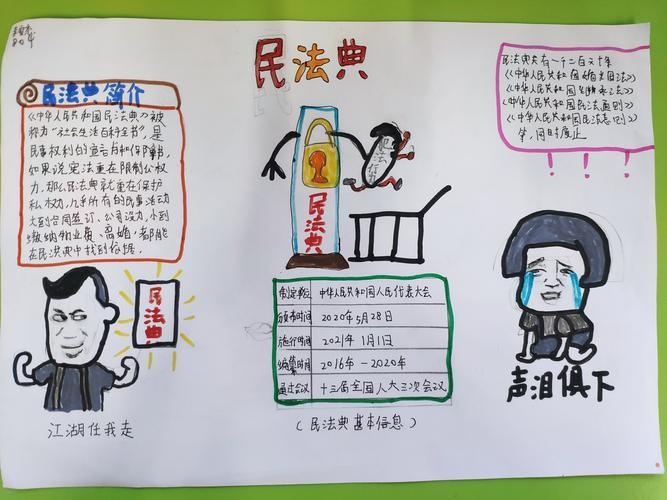 民法典
民法典简介
《中华人民共和国民法典》被
称为"社会生活百科全书",是
如果说宪法重在限制公权
力,那么民法典就重在保护
私权力,几乎所有的民事活动
大到合同签订、公司设立,小到
缴纳物业费、离婚,都能
在民法典中找到依据.
民法典
江湖任我走
民法典
中华人民共和国人民代表大会
颁布时间 2020年5月28日
施行时间 2021年1月1日
2016年-2020年
通过会议 十三届全国人大三次会议
(民法典基本信息)
民法典共有一千二百六十
《中华人民共和国
《中华人民共和国
《中华人民共和国民法通则》
《中华人民共和国民法总则》
等,同时废止
!!!
声泪俱下